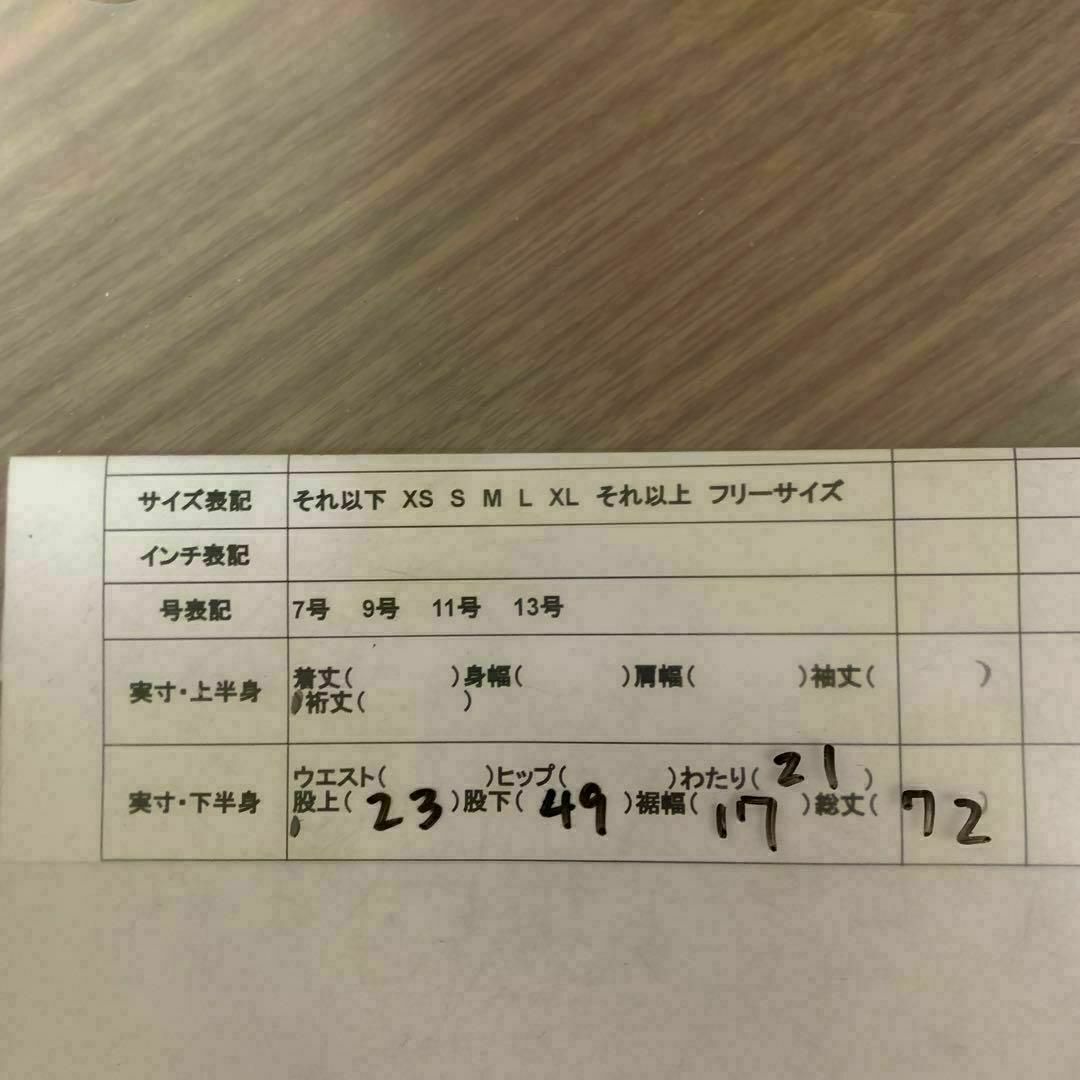 サイズ表記 それ以下 XS S M L XL それ以上 フリーサイズ
インチ表記
号表記 7号 9号 11号 13号
実寸・上半身 着丈( )身幅( )肩幅( )袖丈( )
裄丈( )
実寸・下半身 ウエスト( )ヒップ( )わたり( 21 )
股上( 23 )股下( 49 )裾幅( 17 )総丈( 72 )